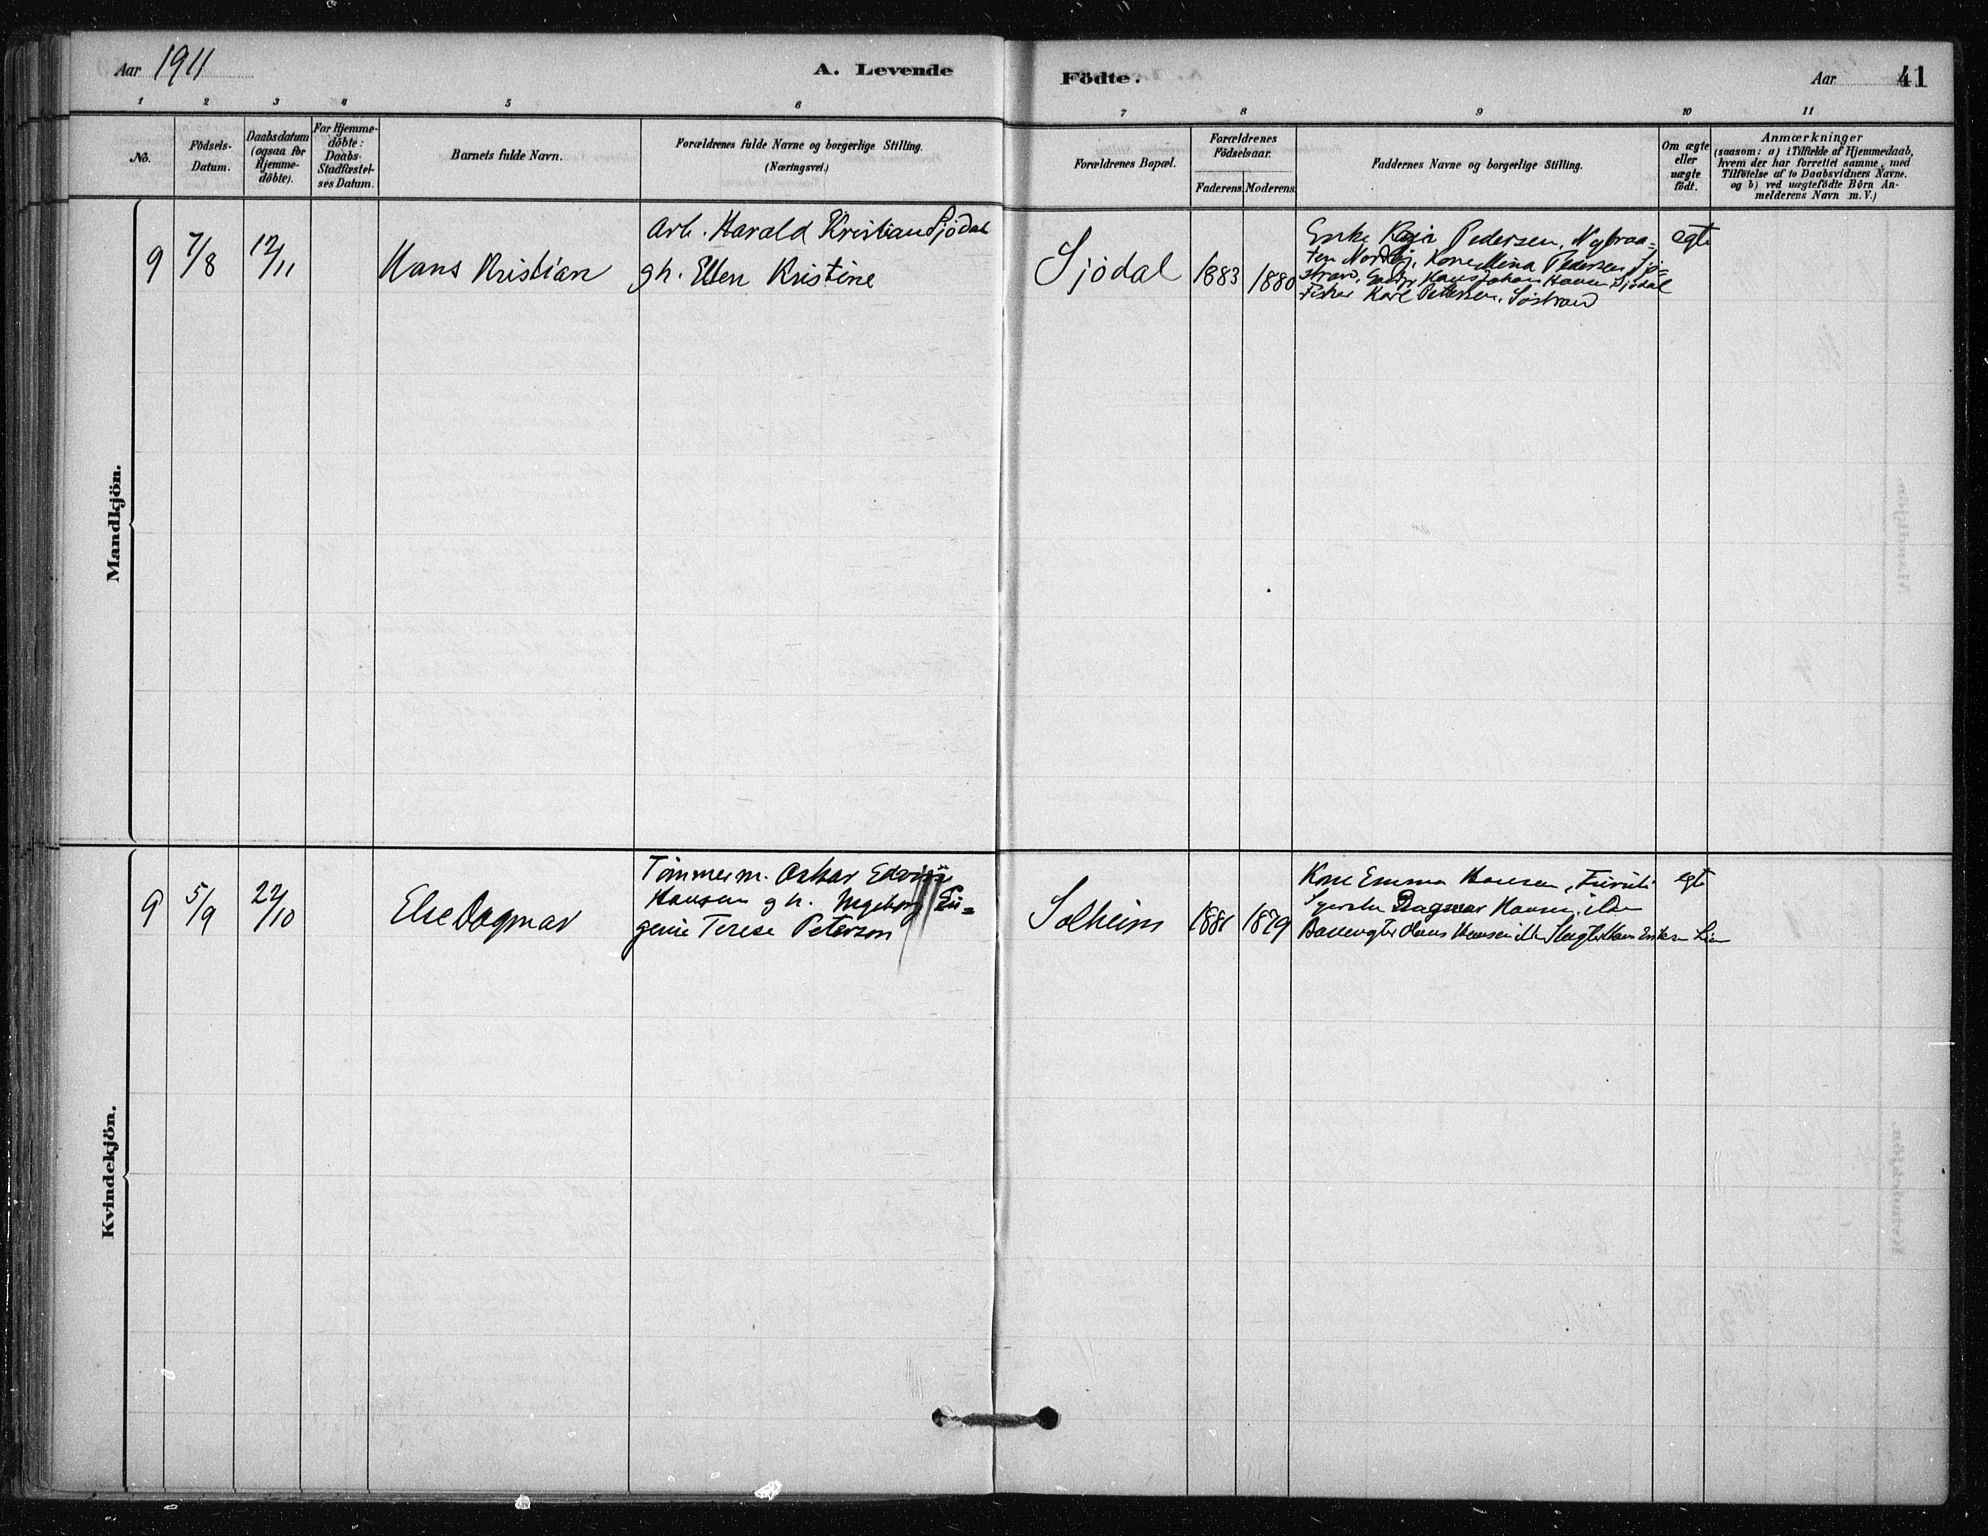 Aar 1911
A. Levende
Födte.
Aar
41
1 2 3 4 5 6 7 8 9 10 11
Nô.
Födsels-
Datum.
Daabsdatum
(ogsaa for
Hjemme-
döbte).
For Hjemme-
döbte:
Daabs-
Stadfæstel-
ses Datum.
Barnets fulde Navn.
Forældrenes fulde Navne og borgerlige Stilling.
(Næringsvei.)
Forældrenes Bopæl.
Forældrenes
Födselsaar.
Faderens.
Moderens.
Faddernes Navne og borgerlige Stilling.
Om ægte
eller
uægte
födt.
Anmærkninger
(saasom: a) i Tilfælde af Hjemmedaab,
hvem der har forrettet samme, med
Tilföielse af to Daabsvidners Navne.
og b) ved uægtefödte Börn An-
melderens Navn m. V.)
Mandkjön.
9
7/8
12/11
Hans Kristian
Arb. Harald Kristian Sjödal
gh. Ellen Kristine
Sjödal
1883
1880
Enke Kaja Pedersen, Nybraa-
ten Nordby, Kone Mina Pedersen Sjö-
strand, Hans Johan Hansen Sjödal
Fisker Karl Pettersen, Söstrand
egte
Kvindekjön.
9
5/9
22/10
Else Dagmar
Tömmerm. Oskar Edvin
Hansen gh. Ingeborg Eu-
genie Terese Peterson
Solheim
1881
1879
Kone Emma Hansen,
Syerske Dagmar Hansen, ibdm
Hans Hansen Hans Eriksen Lien
egte